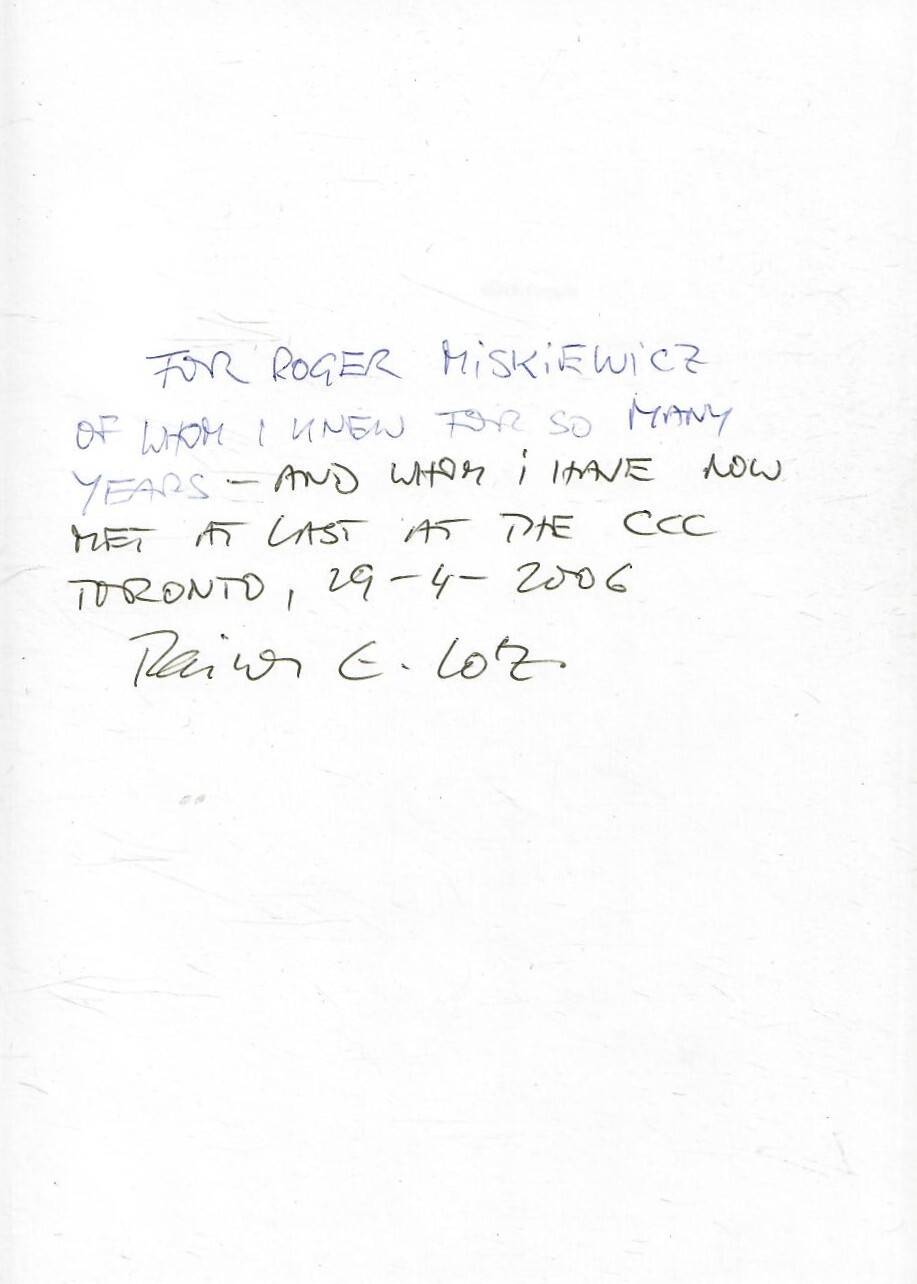 FOR ROGER MiSKiEWiCZ
OF WHOM I KNEW FOR SO MANY
YEARS – AND WHOM i HAVE NOW
MET AT LAST AT THE CCC
TORONTO, 29-4-2006
Rainer E. Lotz